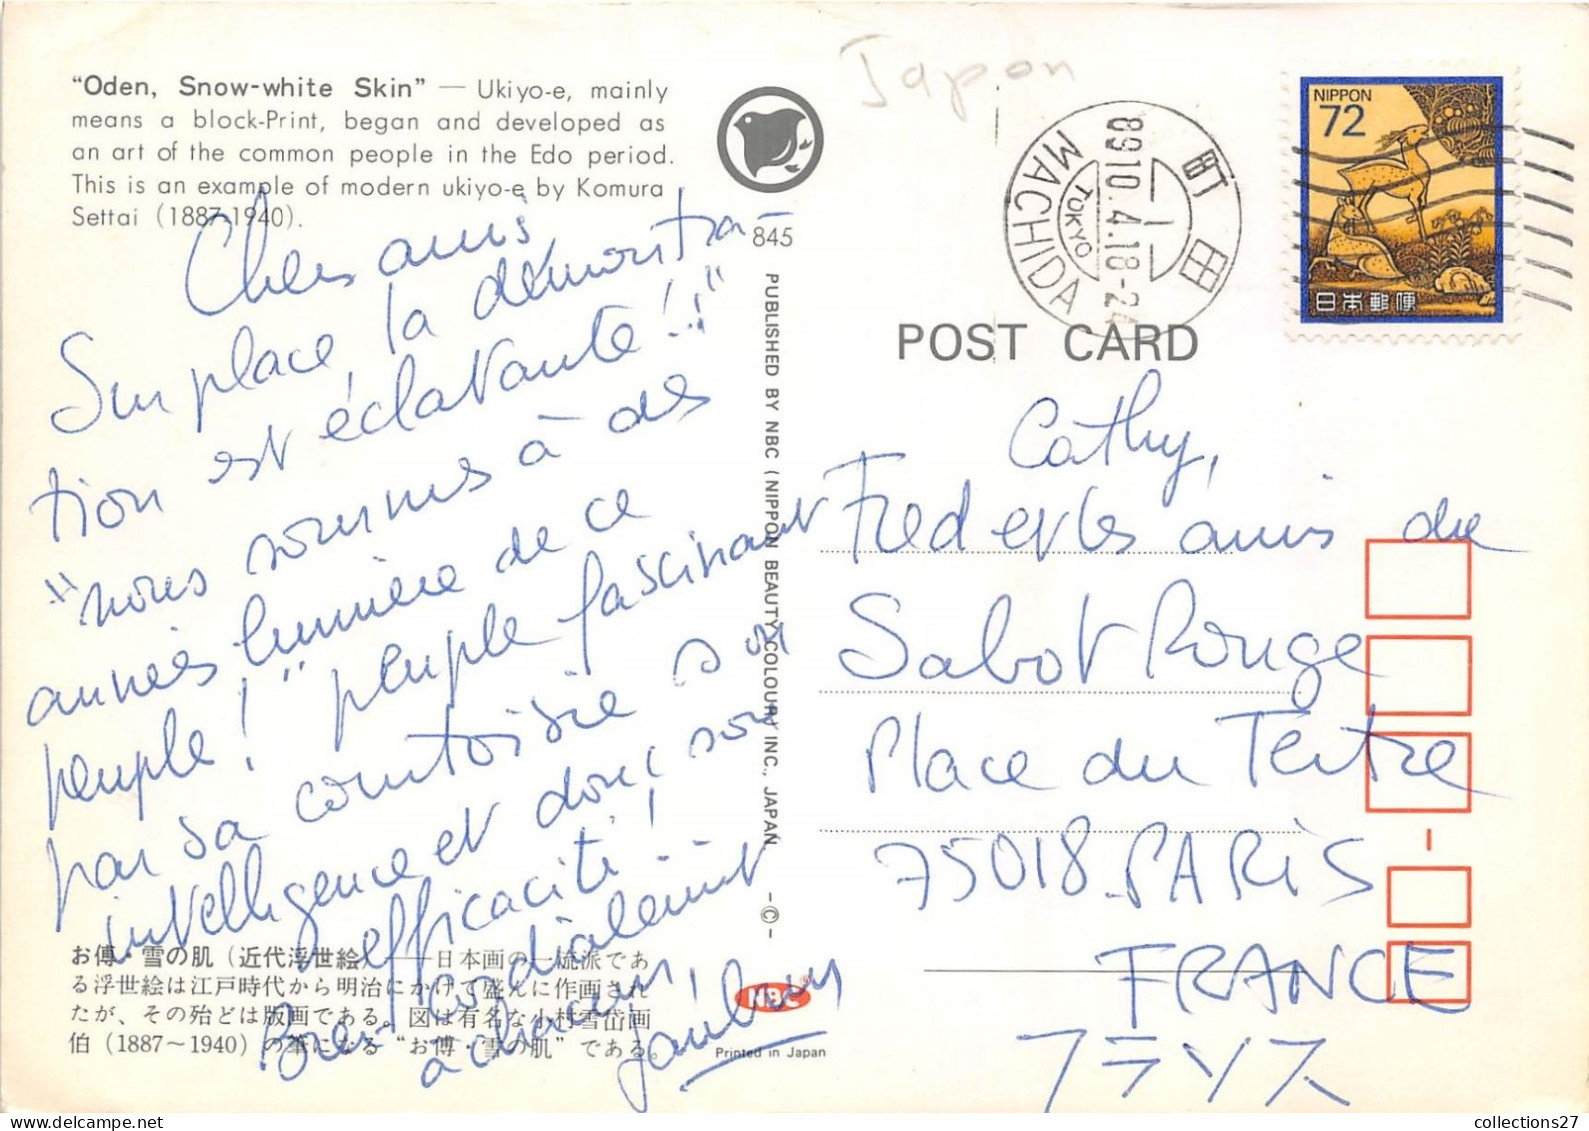 "Oden, Snow-white Skin" — Ukiyo-e, mainly
means a block-Print, began and developed as
an art of the common people in the Edo period.
This is an example of modern ukiyo-e by Komura
Settai (1887-1940).
845
Chers amis
Sur place, la démonstra-
tion est éclatante!!"
"nous sommes à des
années lumière de ce
peuple!" peuple fascinant
par sa courtoisie son
intelligence et donc, son
efficacité!
Bien cordialement
à chacun,
お傳・雪の肌 (近代浮世絵) ——日本画の一流派であ
る浮世絵は江戸時代から明治にかけて盛んに作画され
たが、その殆どは版画である。図は有名な小村雪岱画
伯 (1887～1940) の筆になる "お傳・雪の肌" である。
PUBLISHED BY NBC (NIPPON BEAUTY COLOUR) INC., JAPAN -©-
NBC®
Printed in Japan
Japon
町田
89.10.4.18-24
TOKYO
MACHIDA
NIPPON
72
日本郵便
POST CARD
Cathy,
Fred et les amis du
Sabot Rouge
Place du Tertre
75018 PARIS
FRANCE
フランス
collections27